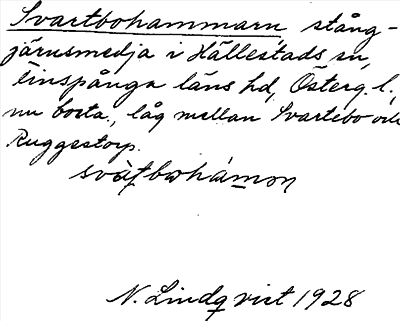 Svartbohammarn, stång-
järnsmedja i Hällestads sn,
Finspånga läns hd, Österg. l.,
nu borta, låg mellan Svartebo och
Ruggstorp.
svàṭbωhámon
N. Lindqvist 1928